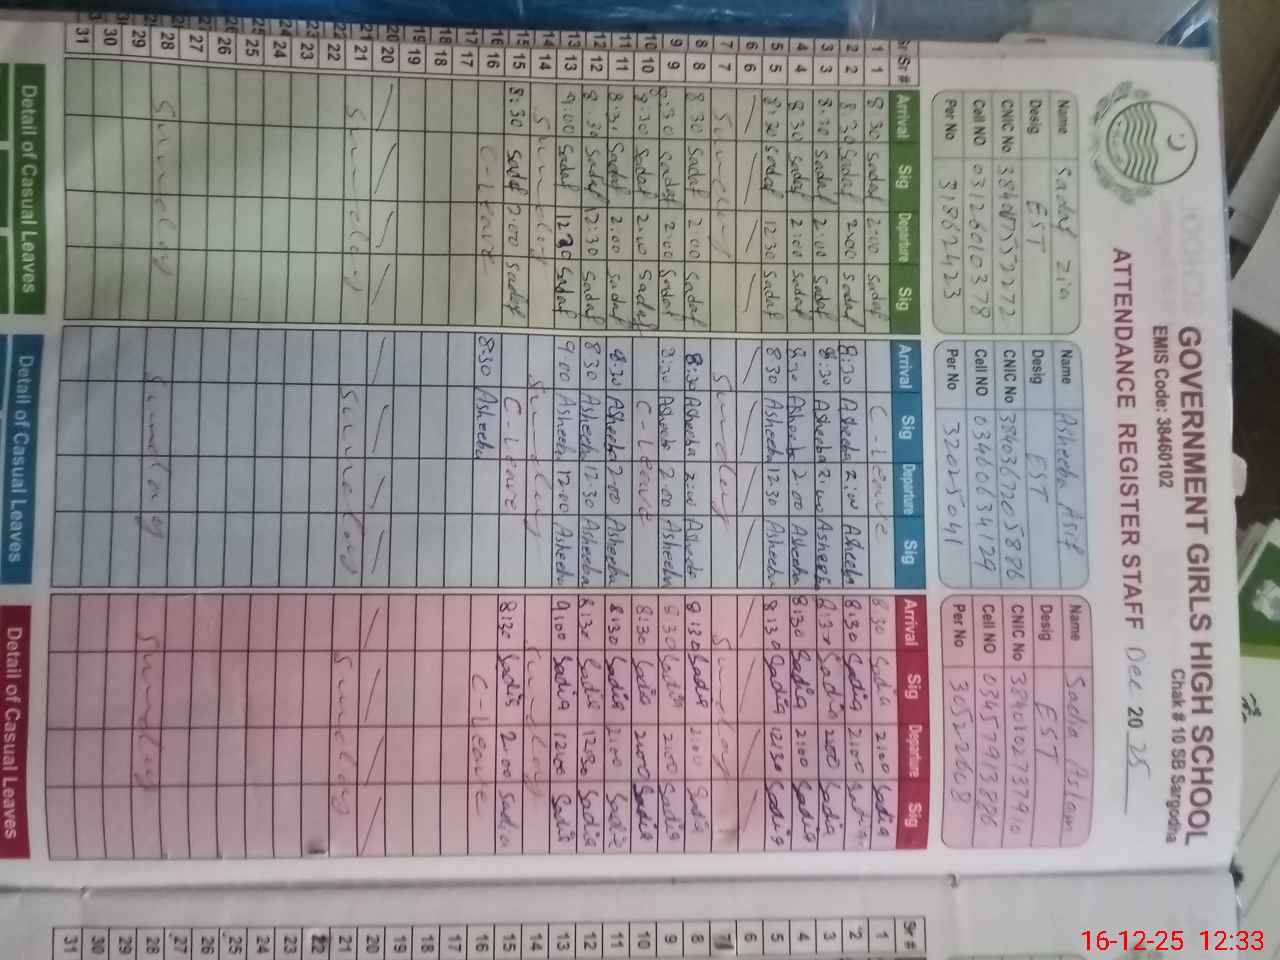 GOVERNMENT GIRLS HIGH SCHOOL
Chak # 10 SB Sargodha
EMIS Code: 38460102
ATTENDANCE REGISTER STAFF Dec 2025
Name Sadaf Zia
Desig EST
CNIC No
Cell NO 03126010378
Per No 31862423
Name Asheeba Asif
Desig EST
CNIC No 3840367205886
Cell NO 03460634129
Per No 32025041
Name Sadia Aslam
Desig EST
CNIC No 3840102737910
Cell NO 03457913886
Per No 30522608
Sr # Arrival Sig Departure Sig Arrival Sig Departure Sig Arrival Sig Departure Sig
1 8:30 Sadaf 2:00 Sadaf C-Leave 8:30 Sadia 2:00 Sadia
2 8:30 Sadaf 2:00 Sadaf 8:30 Asheeba 2:00 Asheeba 8:30 Sadia 2:00 Sadia
3 8:30 Sadaf 2:00 Sadaf 8:30 Asheeba 2:00 Asheeba 8:30 Sadia 2:00 Sadia
4 8:30 Sadaf 2:00 Sadaf 8:30 Asheeba 2:00 Asheeba 8:30 Sadia 2:00 Sadia
5 8:30 Sadaf 12:30 Sadaf 8:30 Asheeba 12:30 Asheeba 8:30 Sadia 12:30 Sadia
6
7 Sunday Sunday Sunday
8 8:30 Sadaf 2:00 Sadaf 8:30 Asheeba 2:00 Asheeba 8:30 Sadia 2:00 Sadia
9 8:30 Sadaf 2:00 Sadaf 8:30 Asheeba 2:00 Asheeba 8:30 Sadia 2:00 Sadia
10 8:30 Sadaf 2:00 Sadaf C-Leave 8:30 Sadia 2:00 Sadia
11 8:30 Sadaf 2:00 Sadaf 8:30 Asheeba 2:00 Asheeba 8:30 Sadia 2:00 Sadia
12 8:30 Sadaf 12:30 Sadaf 8:30 Asheeba 12:30 Asheeba 8:30 Sadia 12:30 Sadia
13 9:00 Sadaf 12:30 Sadaf 9:00 Asheeba 12:00 Asheeba 9:00 Sadia 12:00 Sadia
14 Sunday Sunday Sunday
15 8:30 Sadaf 2:00 Sadaf C-Leave 8:30 Sadia 2:00 Sadia
16 C-Leave 8:30 Asheeba C-Leave
17
18
19
20
21 Sunday Sunday Sunday
22
23
24
25
26
27
28 Sunday Sunday Sunday
29
30
31
Detail of Casual Leaves Detail of Casual Leaves Detail of Casual Leaves
Sr #
1
2
3
4
5
6
7
8
9
10
11
12
13
14
15
16
17
18
19
20
21
22
23
24
25
26
27
28
29
30
31
16-12-25 12:33